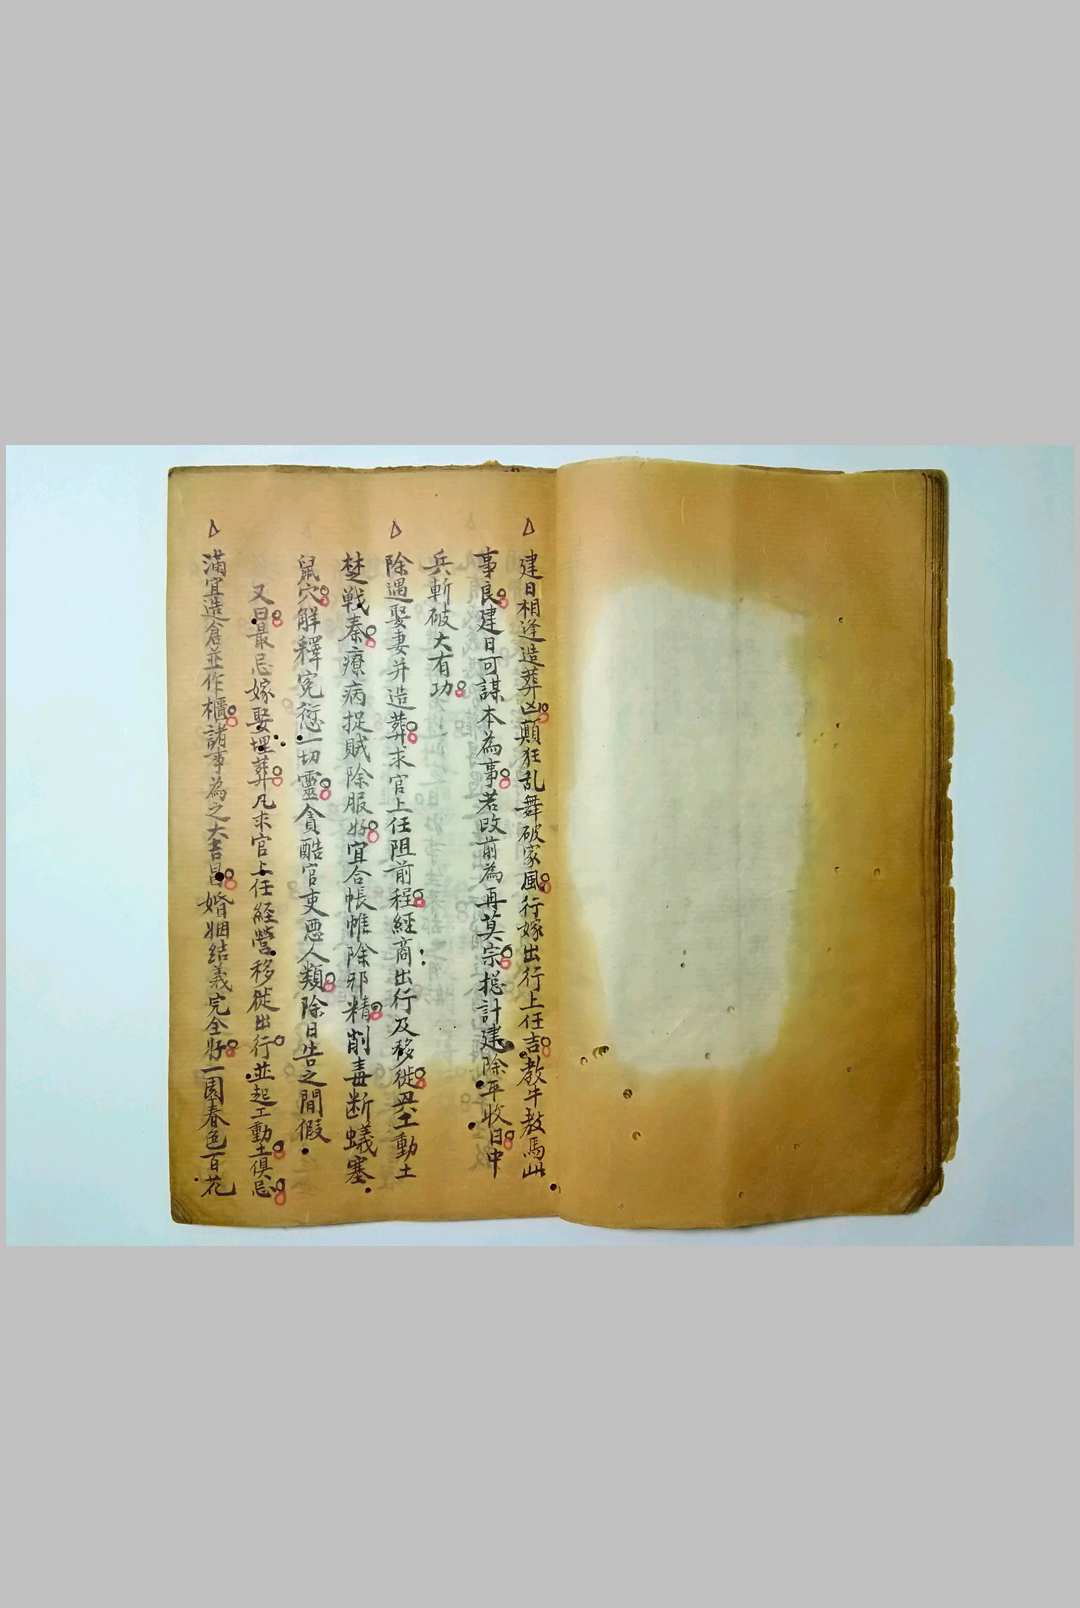 建日相逢造葬凶顛狂乱舞破家風行嫁出行上任吉教牛教馬此
事良建日可謀本為事若改前為再莫宗揔計建除平收日中
兵斬破大有功
除遇娶妻并造葬求官上任阻前程經商出行及移徙興工動土
楚戦秦療病捉賊除服好宜合帳帷除邪精削毒断蟻塞
鼠穴解釋冤愆一切靈貪酷官吏悪人類除日告之閒假
又曰最忌嫁娶埋葬凡求官上任經營移徙出行並起工動土俱忌
滿宜造倉並作櫃諸事為之大吉昌婚姻结義完全好一園春色百花